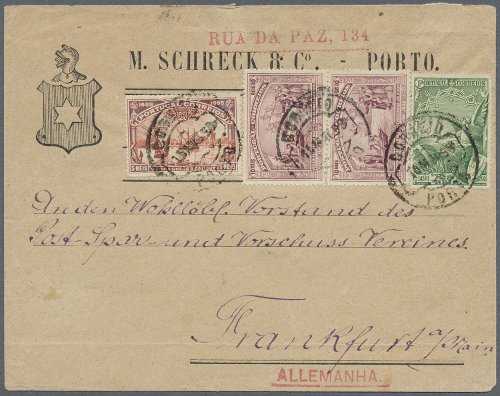 RUA DA PAZ, 134
M. SCHRECK & Cº. - PORTO.
PORTUGAL CORREIOS
An den Wohllöbl. Vorstand des
Post-Spar- und Vorschuss-Vereines.
Frankfurt a/Main
ALLEMANHA.